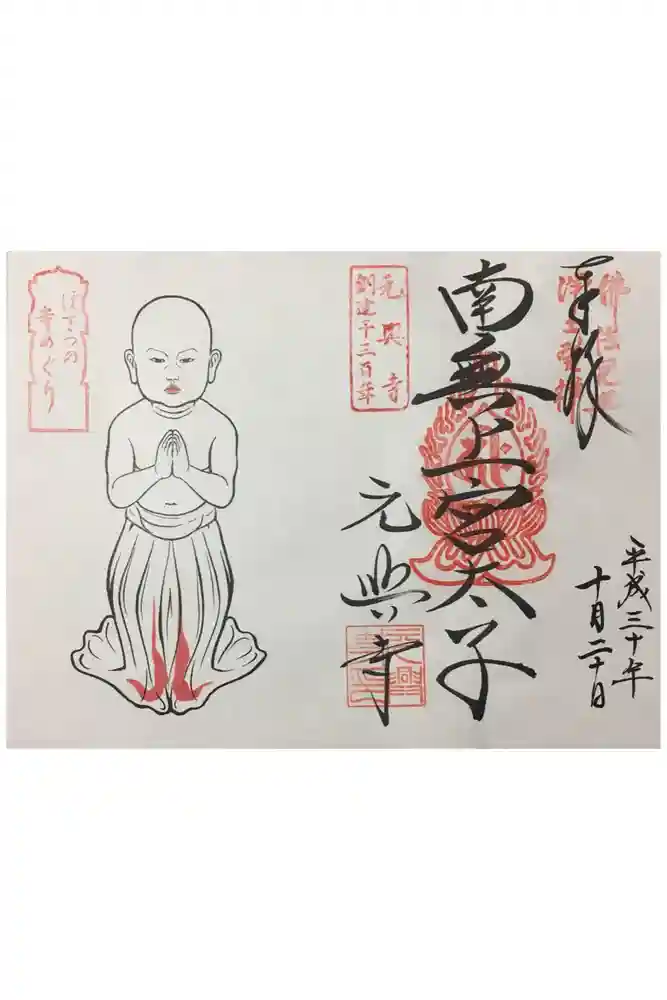 奉拝
平成三十年
十月二十日
南無上宮太子
元興寺
元興寺
創建千三百年
寺めぐり